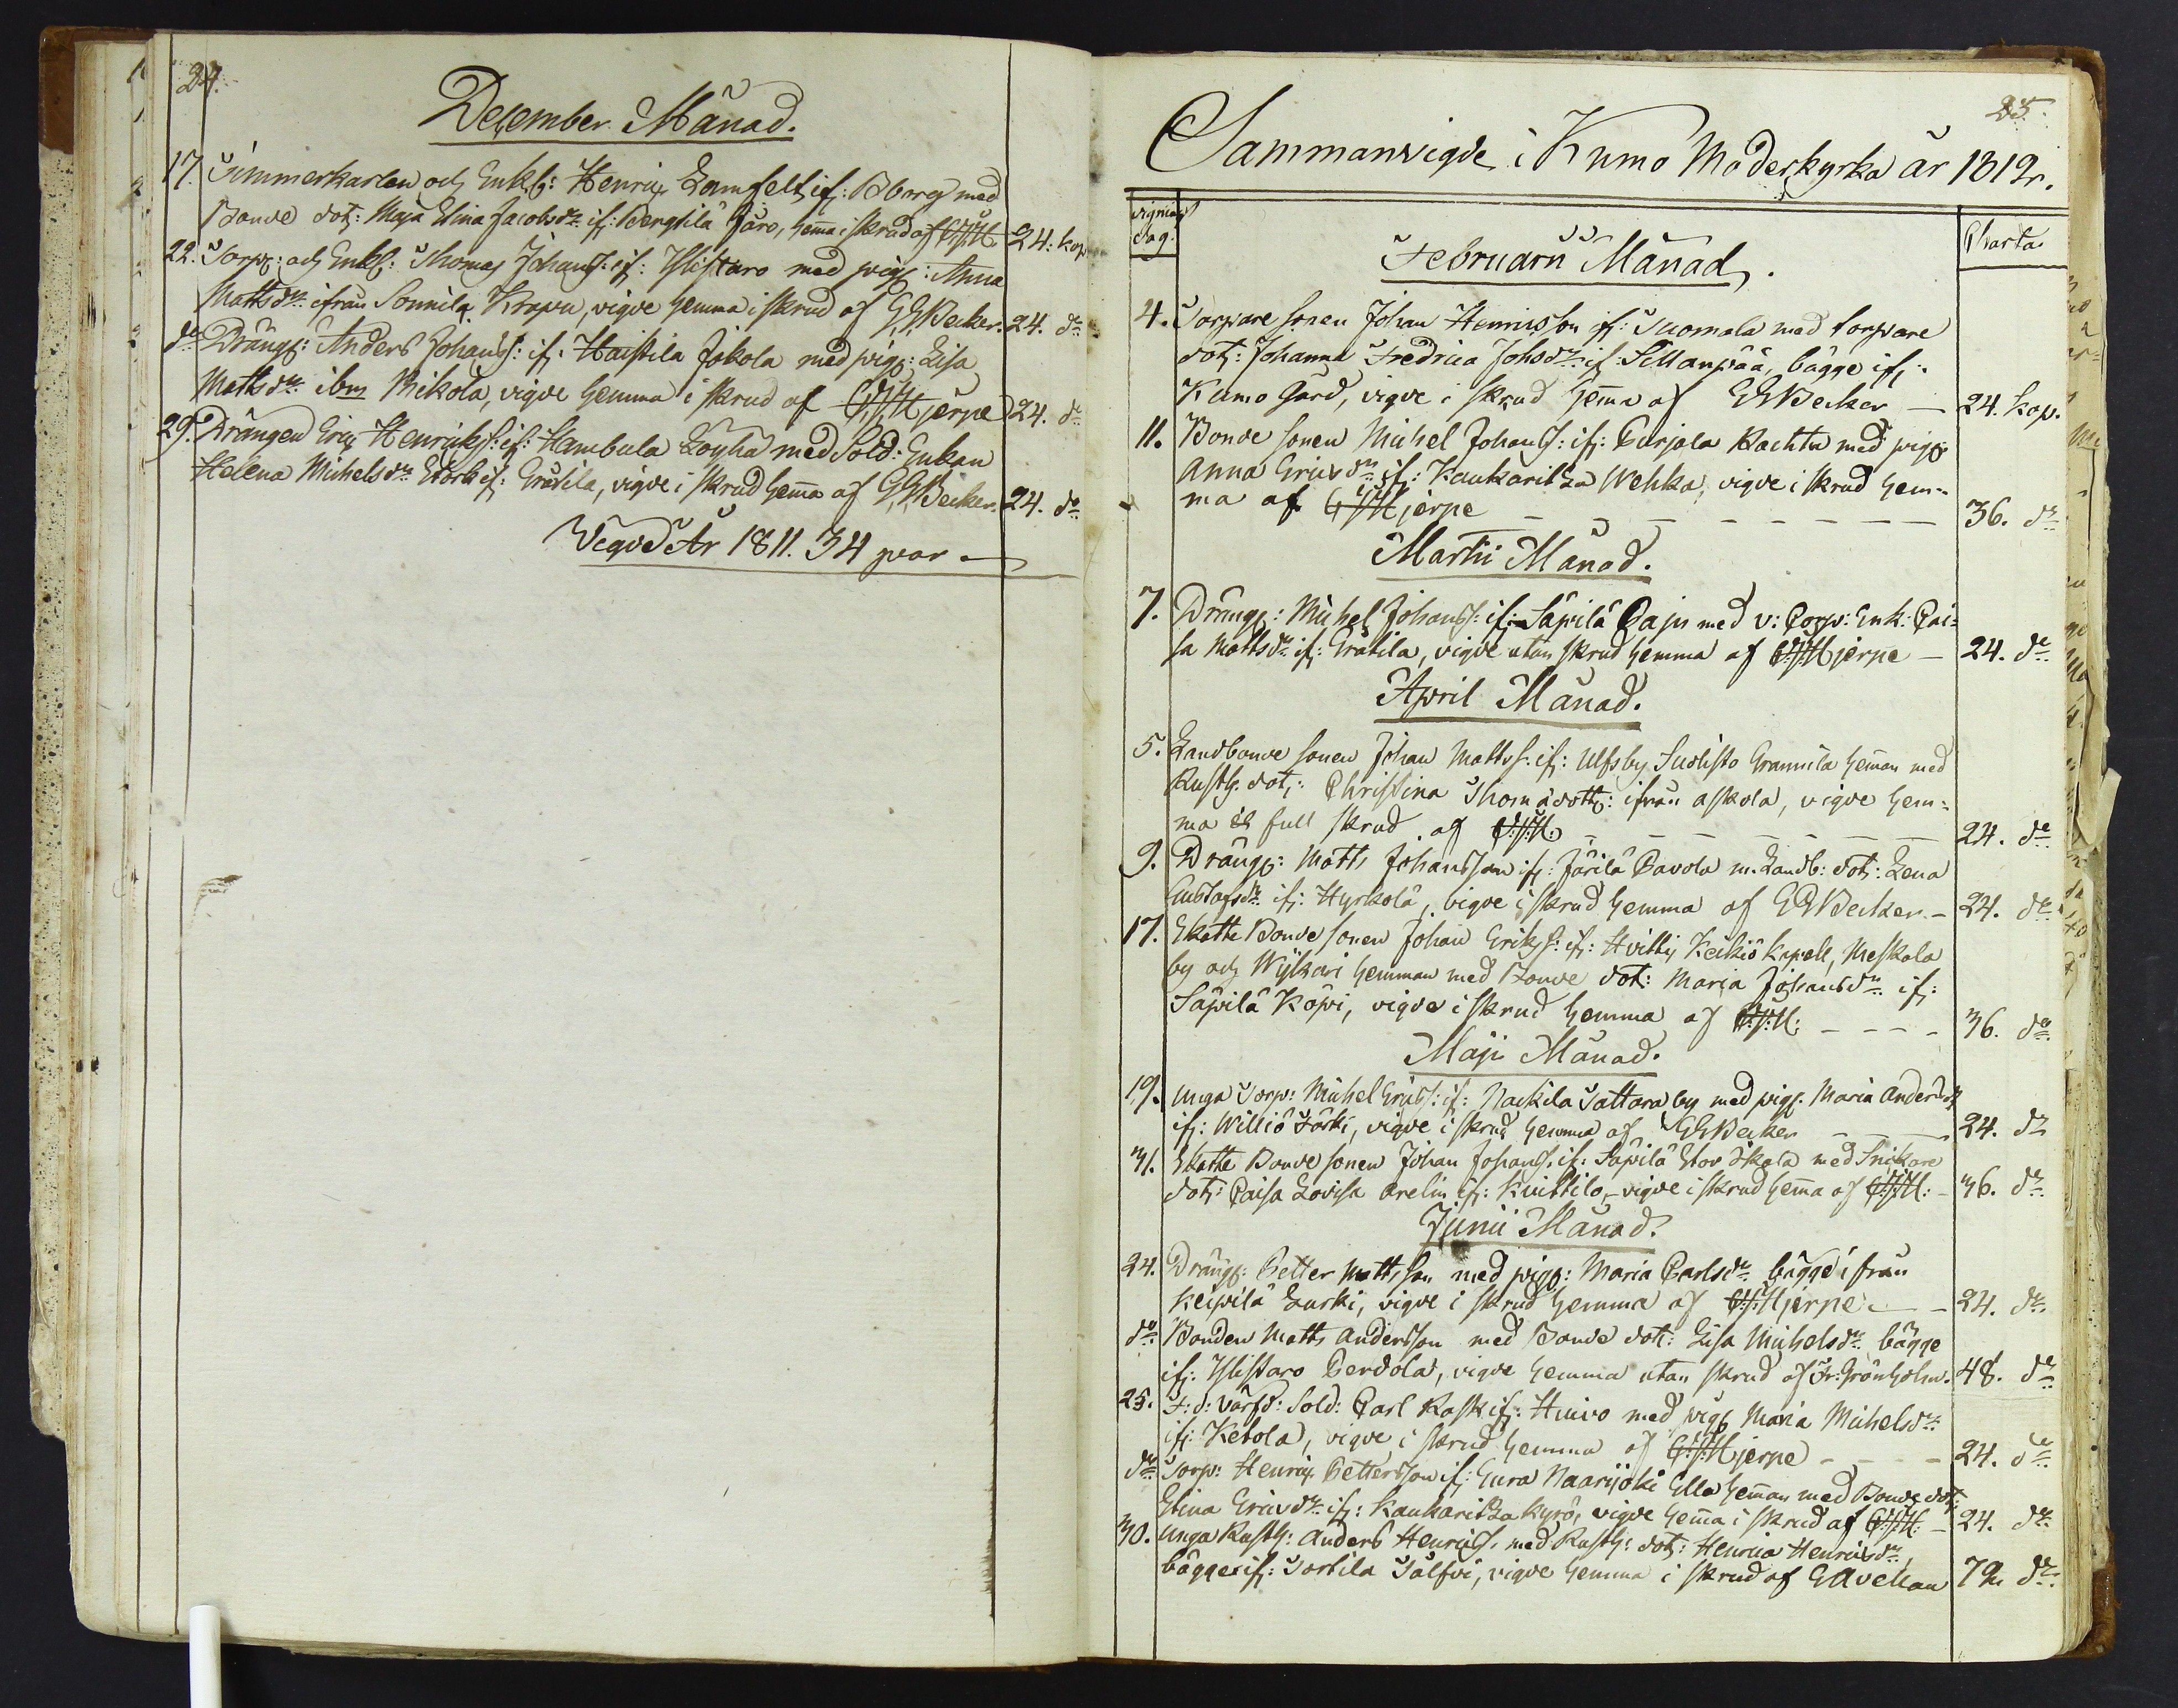 24.
December Månad.
17. Timmerkarlen och Enkl: Henric Lomfelt if: B:borg med
Bonde dot: Maja Stina Jacobsdr if: Bergtilä Järo, hema i skrud af G:J:H: 24. kop
22. Torp: och Enkl: Thomas Johanss: if: Ylistaro med pig: Anna
Mattsdr ifrån Sonnila Krapu, vigde hemma i skrud af G.G.Becker. 24. do
do Dräng: Anders Johanss: if: Haistila Jskola med pig: Lisa
Mattsdr ibm Rikola, vigde hemma i skrud af G:J:Hjerpe 24. do
29. Drängen Eric Henricss: if: Hambula Löyhä med Sold: Enkan
Helena Michelsdr Stork if: Gräsila, vigde i skrud hema af G.G.Becker. 24. do
Vigde År 1811. 34 par
25.
Sammanvigde i Kumo Moderkyrka år 1812.
vignings
dag.
Charta
Februarii Månad.
4. Torpare sonen Johan Henricsson if: Suomala med torpare
dot: Johanna Fredrica Johsdr if: Sillanpää, bägge if:
Kumo Gård, vigde i skrud hema af GGBecker 24. kop.
11. Bonde sonen Michel Johanss: if: Carjala Rachtu med pig:
Anna Ericsdr if: Kaukaritza Wehka, vigde i skrud hem-
ma af G:J:Hjerpe 36. do
Martii Månad.
7. Dräng: Michel Johanss: if: Säpilä Caju med v: Corp: Enk: Cai=
sa Mattsdr if: Gräsila, vigde utan skrud hemma af G:J:Hjerpe 24. do
April Månad.
5. Landbonde sonen Johan Mattss: if: Ulfsby Suolisto Grannila heman med
Rusth. dot: Christina Thomædott: ifrån Askola, vigde hem=
ma i full skrud af G:J:H: 24. do
9. Dräng: Matts Johansson if: Järilä Pavola m. Landb: dot: Lena
Gustafsdr if: Hyrkölä, vigde i skrud hemma af GGBecker 24. do
17. Skatte Bonde sonen Johan Erikss: if: Hvittis Keikiö kapell, Meskala
by och Wijkari hemman med Bonde dot: Maria Johansdr if:
Säpilä Köpi, vigde i skrud hemma af G:J:H: 36. do
Maji Månad.
19. Unga Torp: Michel Ericss: if: Nackila Tattara by med pig: Maria Andersdr
if: Williö Törki, vigde i skrud hemma af GGBecker 24. do
31. Skatte Bonde sonen Johan Johanss: if: Säpilä Stor Skala med Snikare
dot: Caisa Lovisa Orelin if: Kuittilo, vigde i skrud hema af G:J:H: 36. do
Junii Månad.
24. Dräng: Petter Mattsson med pig: Maria Carlsdr bägge ifrån
Keipilä Lurki, vigde i skrud hemma af G:J:Hjerpe 24. do
do Bonden Matts Andersson med Bonde dot: Lisa Michelsdr bägge
if: Ylistaro Perdola, vigde hemma utan skrud af Fr: Grönholm. 48. do
25. F: d: värfd: Sold: Carl Rask if: Huivo med pig: Maria Michelsdr
if: Ketola, vigde i skrud hemma af G:J:Hjerpe 24. do
do Torp: Henric Pettersson if: Eura Naarijoki Ella heman med Bonde dot:
Stina Ericsdr if: Kaukaritza Kyrö, vigde hema i skrud af G:J:H: 24. do
30. Unga Rusth: Anders Henrics. med Rusth: dot: Henrica Henricsdr,
bägge if: Tortila Tålfvi, vigde hemma i skrud af GAvellan 72. do